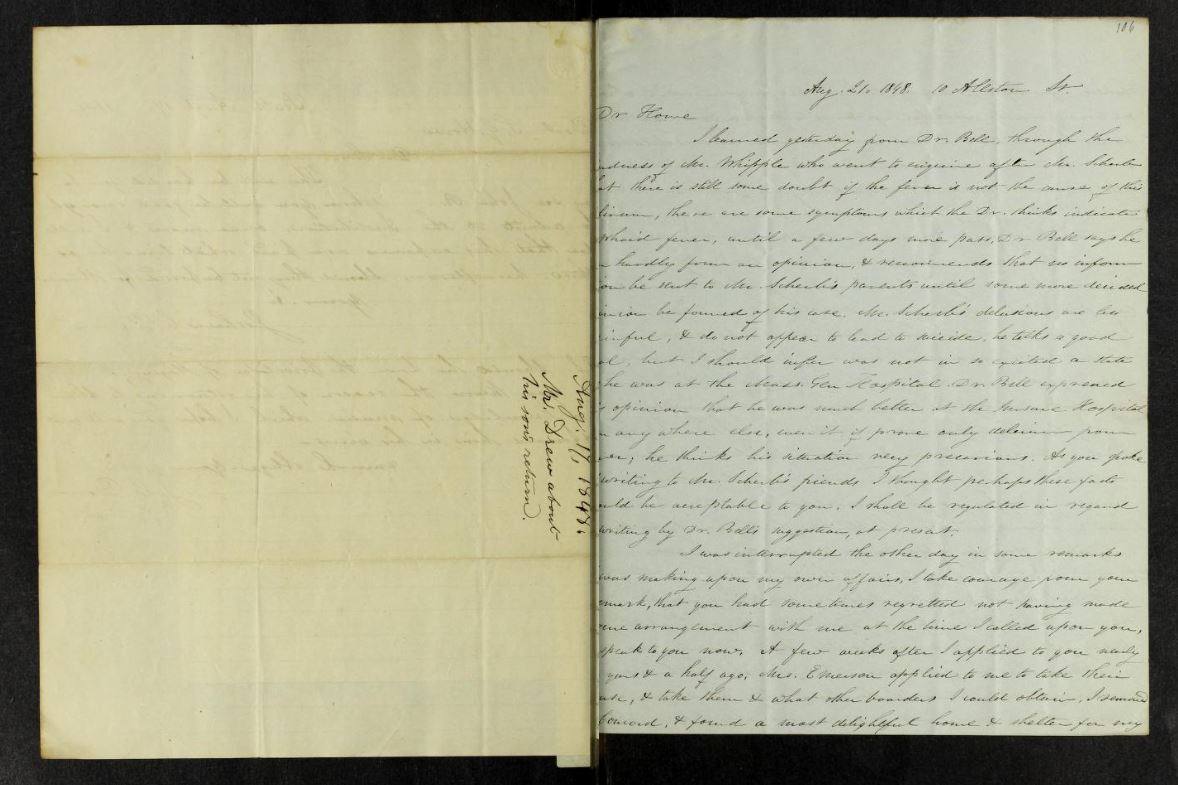 Aug. 17, 1848.
Mr. Drew about
his son's return.
106
Aug. 21. 1848. 10 Allston St.
Dr Howe
I learned yesterday from Dr. Bell, through the
dness of Mr. Whipple who went to enquire after Mr. Scherb
at there is still some doubt if the fever is not the cause of this
lirium, there are some symptoms which the Dr. thinks indicate
phoid fever, until a few days more pass, Dr Bell says he
hardly form an opinion, & recommends that no inform
on be sent to Mr. Scherb's parents until some more decided
inion be formed of his case. Mr. Scherb's delusions are less
inful, & do not appear to lead to suicide, he talks a good
al, but I should infer was not in so excited a state
he was at the Mass. Gen Hospital. Dr. Bell expressed
s opinion that he was much better at the Insane Hospital
n any where else, even if it prove only delirium from
ver; he thinks his situation very precarious. As you spoke
writing to Mr. Scherb's friends I thought perhaps these facts
uld be acceptable to you. I shall be regulated in regard
writing by Dr. Bell's suggestion, at present.
I was interrupted the other day in some remarks
was making upon my own affairs, I take courage from your
emark, that you had sometimes regretted not having made
me arrangement with me at the time I called upon you,
speak to you now. A few weeks after I applied to you nearly
years & a half ago, Mrs. Emerson applied to me to take their
use, & take them & what other boarders I could obtain, I removed
Concord, & found a most delightful home & shelter for my